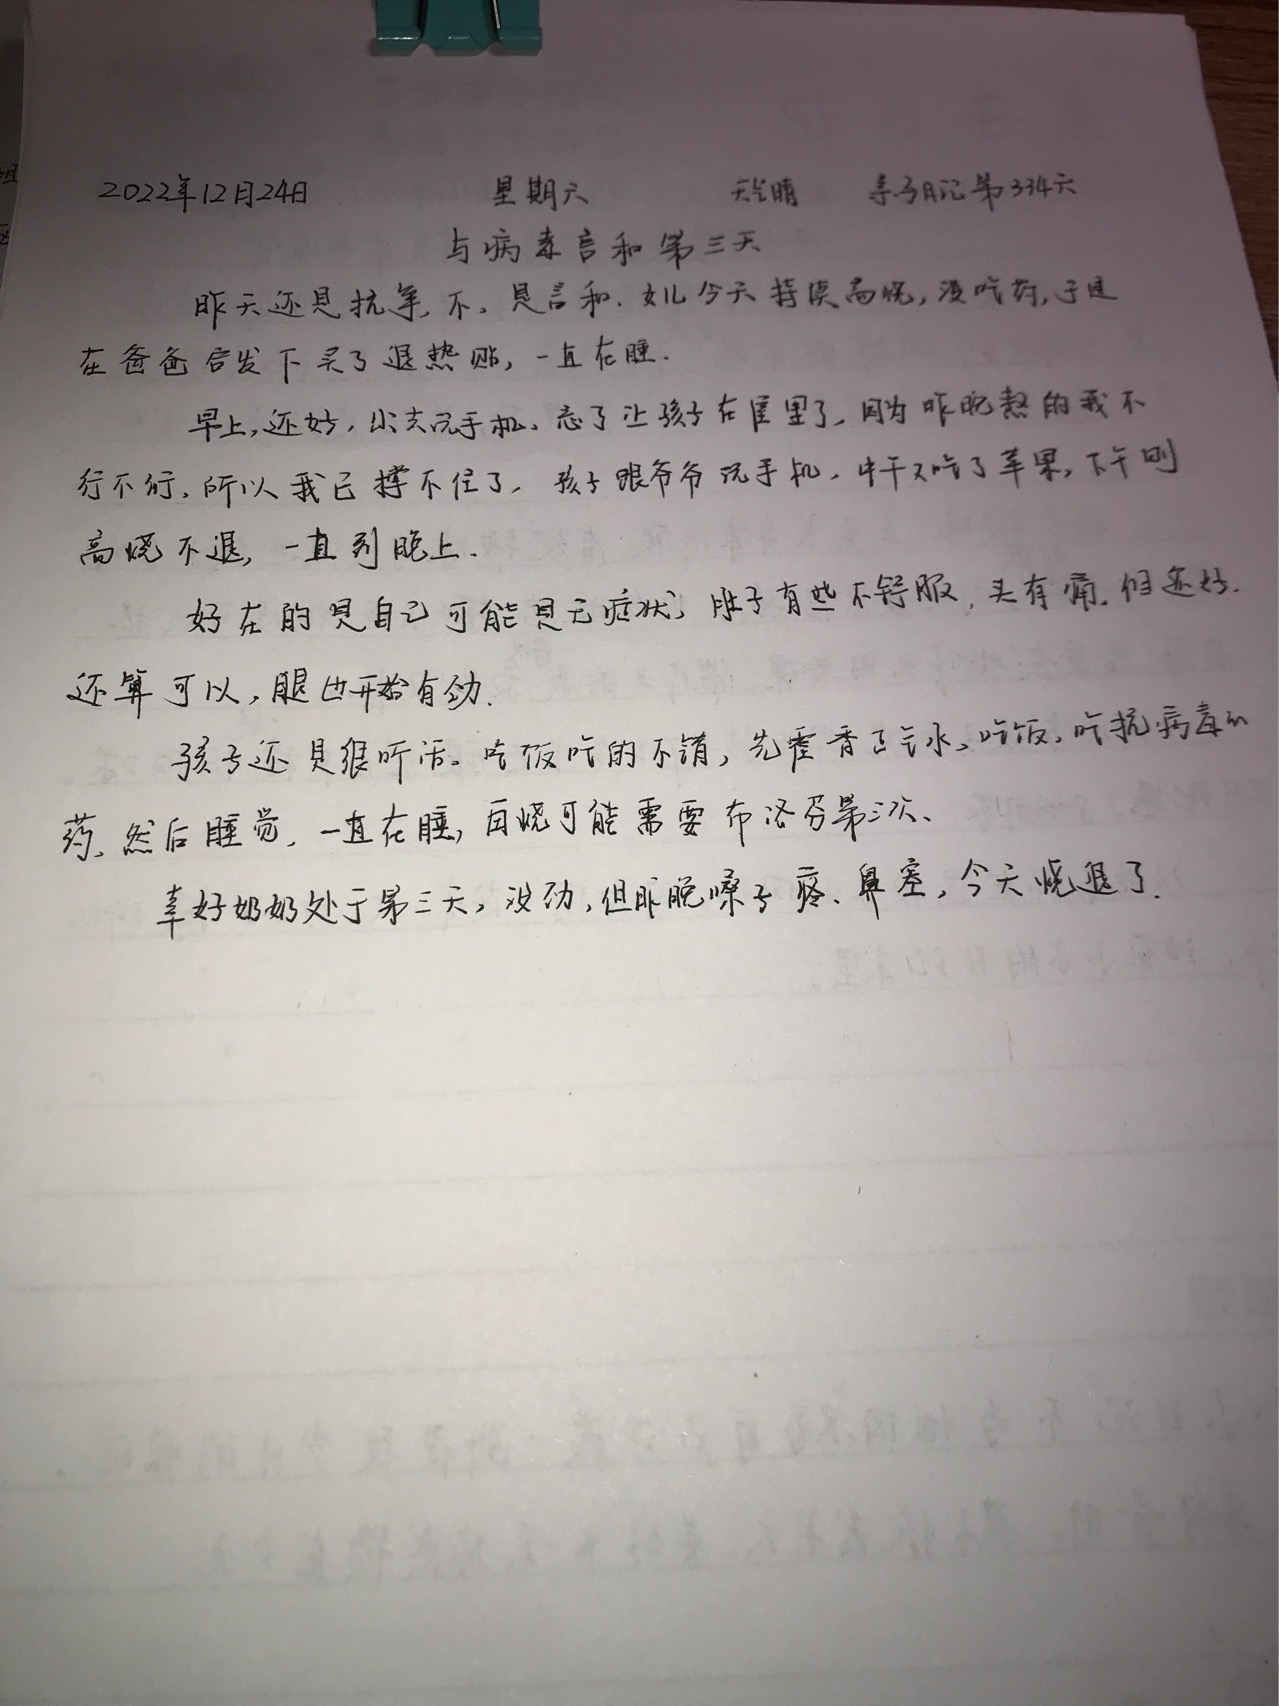 2022年12月24日 星期六 天气晴 亲子日记第334天
与病毒言和第三天
昨天还是抗争，不，是言和。女儿今天持续高烧，没吃药，于是
在爸爸启发下买了退热贴，一直在睡。
早上，还好，出去玩手机，忘了让孩子在屋里了，因为昨晚熬的我不
行不行，所以我已撑不住了，孩子跟爷爷玩手机，中午又吃了苹果，下午则
高烧不退，一直到晚上。
好在的是自己可能是无症状，脖子有些不舒服，头有痛，但还好。
还算可以，腿也开始有劲。
孩子还是很听话。吃饭吃的不错，先藿香正气水、吃饭、吃抗病毒的
药、然后睡觉，一直在睡，再烧可能需要布洛芬第三次、
幸好奶奶处于第三天，没劲，但昨晚嗓子疼、鼻塞，今天烧退了。